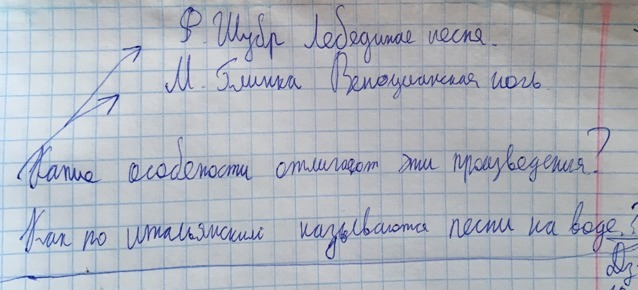 Ф. Шубр Лебединае песня.
М. Глинка Венецианская ночь
Какие особености отличают эти произведения?
Как по итальянский называются песни на воде?
Дз: